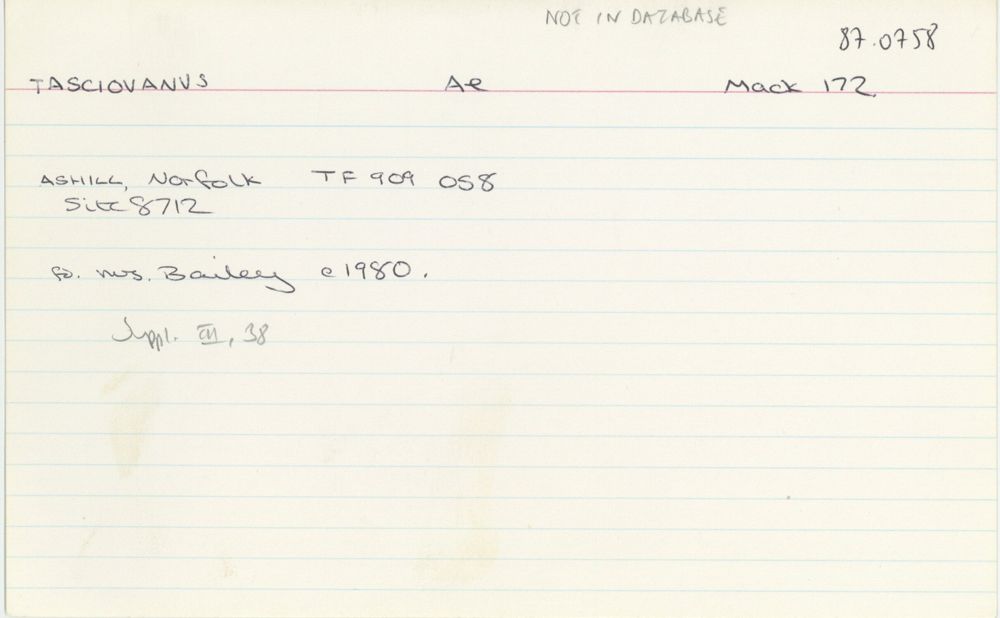 NOT IN DATABASE
87.0758
TASCIOVANVS Ae Mack 172.
ASHILL, Norfolk TF 909 058
Site 8712
fd. Mrs. Bailey c 1980.
Suppl. III, 38